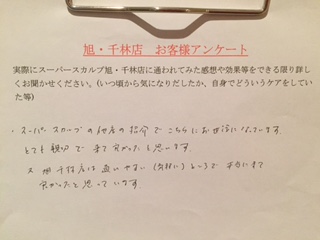 旭・千林店　お客様アンケート
実際にスーパースカルプ旭・千林店に通われてみた感想や効果等をできる限り詳し
くお聞かせください。(いつ頃から気になりだしたか、自身でどういうケアをしてい
た等)
・スーパースカルプの他店の紹介でこちらにお世話になっています。
とても親切で来て良かったと思います。
又 旭千林店は通いやすい ところで 本当に来て
良かったと思っています